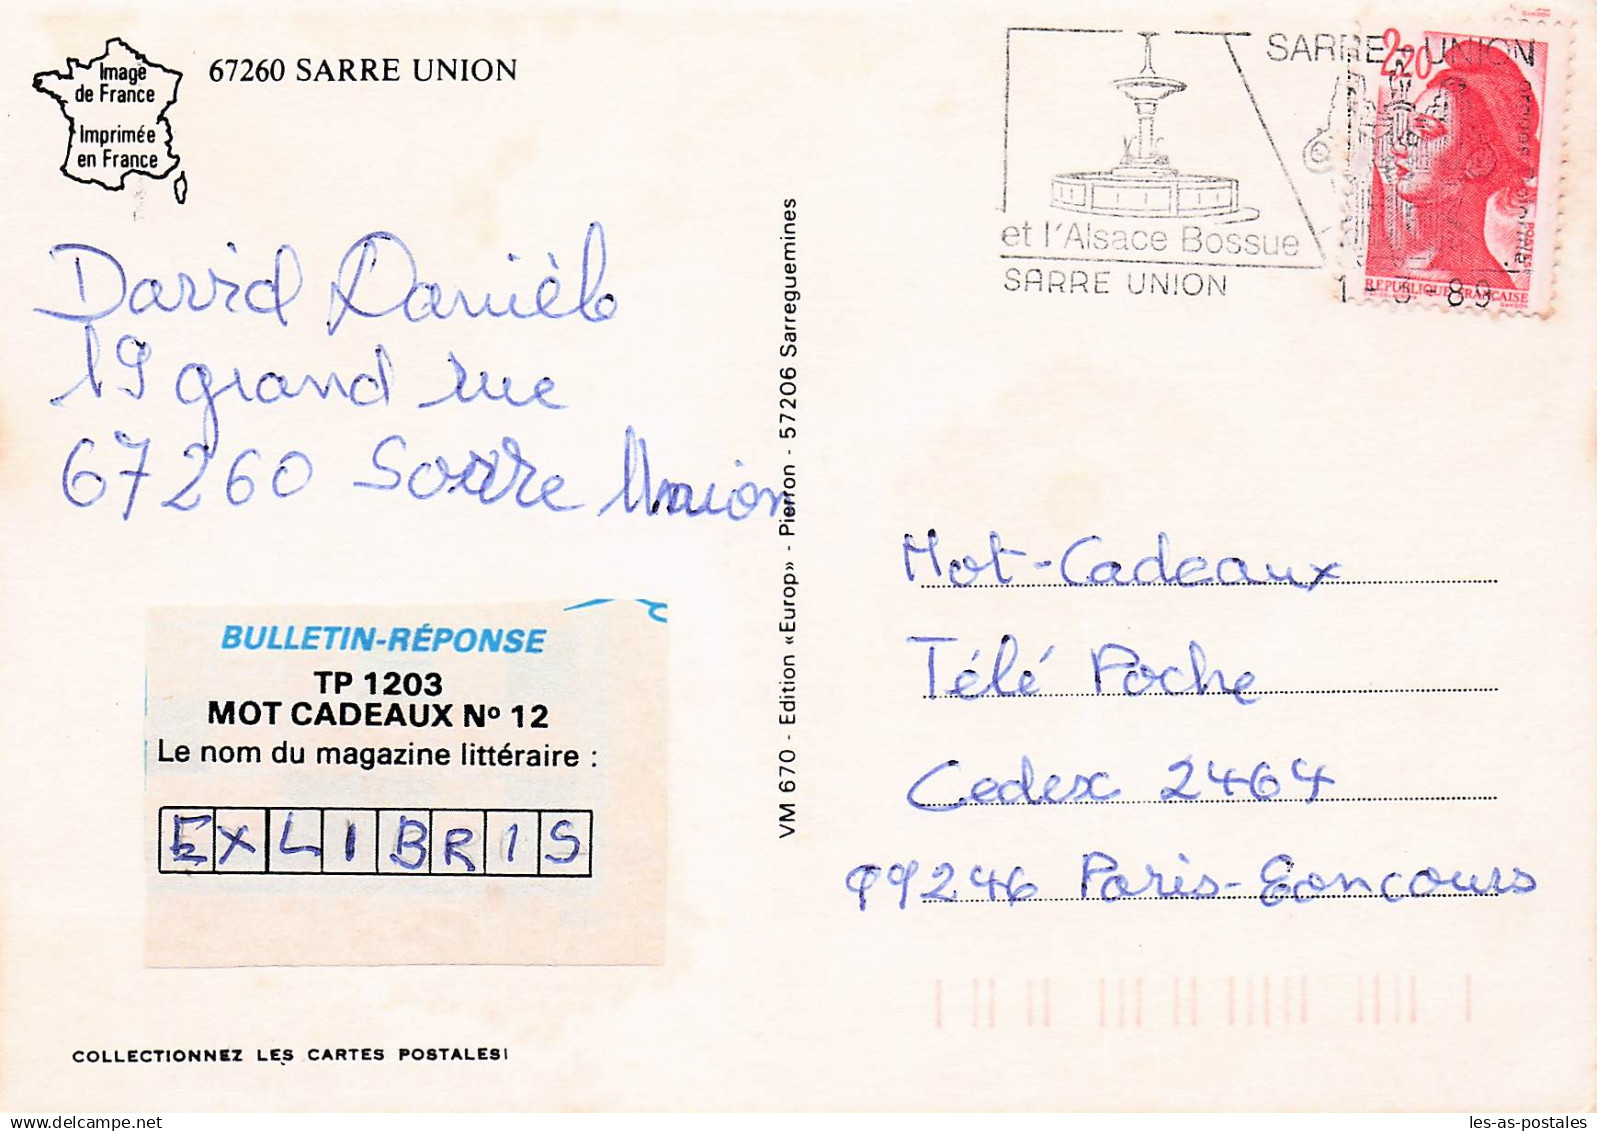 Image
de France
Imprimée
en France
67260 SARRE UNION
David Danièle
19 grand rue
67260 Sarre Union
BULLETIN-RÉPONSE
TP 1203
MOT CADEAUX Nº 12
Le nom du magazine littéraire :
EXLIBRIS
COLLECTIONNEZ LES CARTES POSTALES!
VM 670 - Edition «Europ» - Pierron - 57206 Sarreguemines
SARRE-UNION
et l'Alsace Bossue
SARRE UNION
89
2,20
REPUBLIQUE FRANÇAISE
Mot-Cadeaux
Télé Poche
Cedex 2464
99246 Paris-Concours
les-as-postales